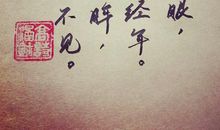 眼，
经年。
眸，
不见。